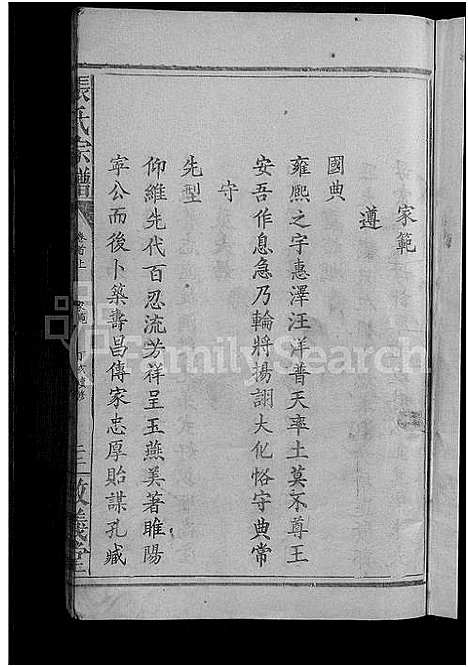 家範
遵
國典
雍熙之宇惠澤汪洋普天率土莫不尊王
安吾作息急乃輸將揚詡大化恪守典常
守
先型
仰維先代百忍流芳祥呈玉燕美著睢陽
寧公而後卜築壽昌傳家忠厚貽謀孔臧
張氏宗譜
卷首上
敦義堂
FamilySearch